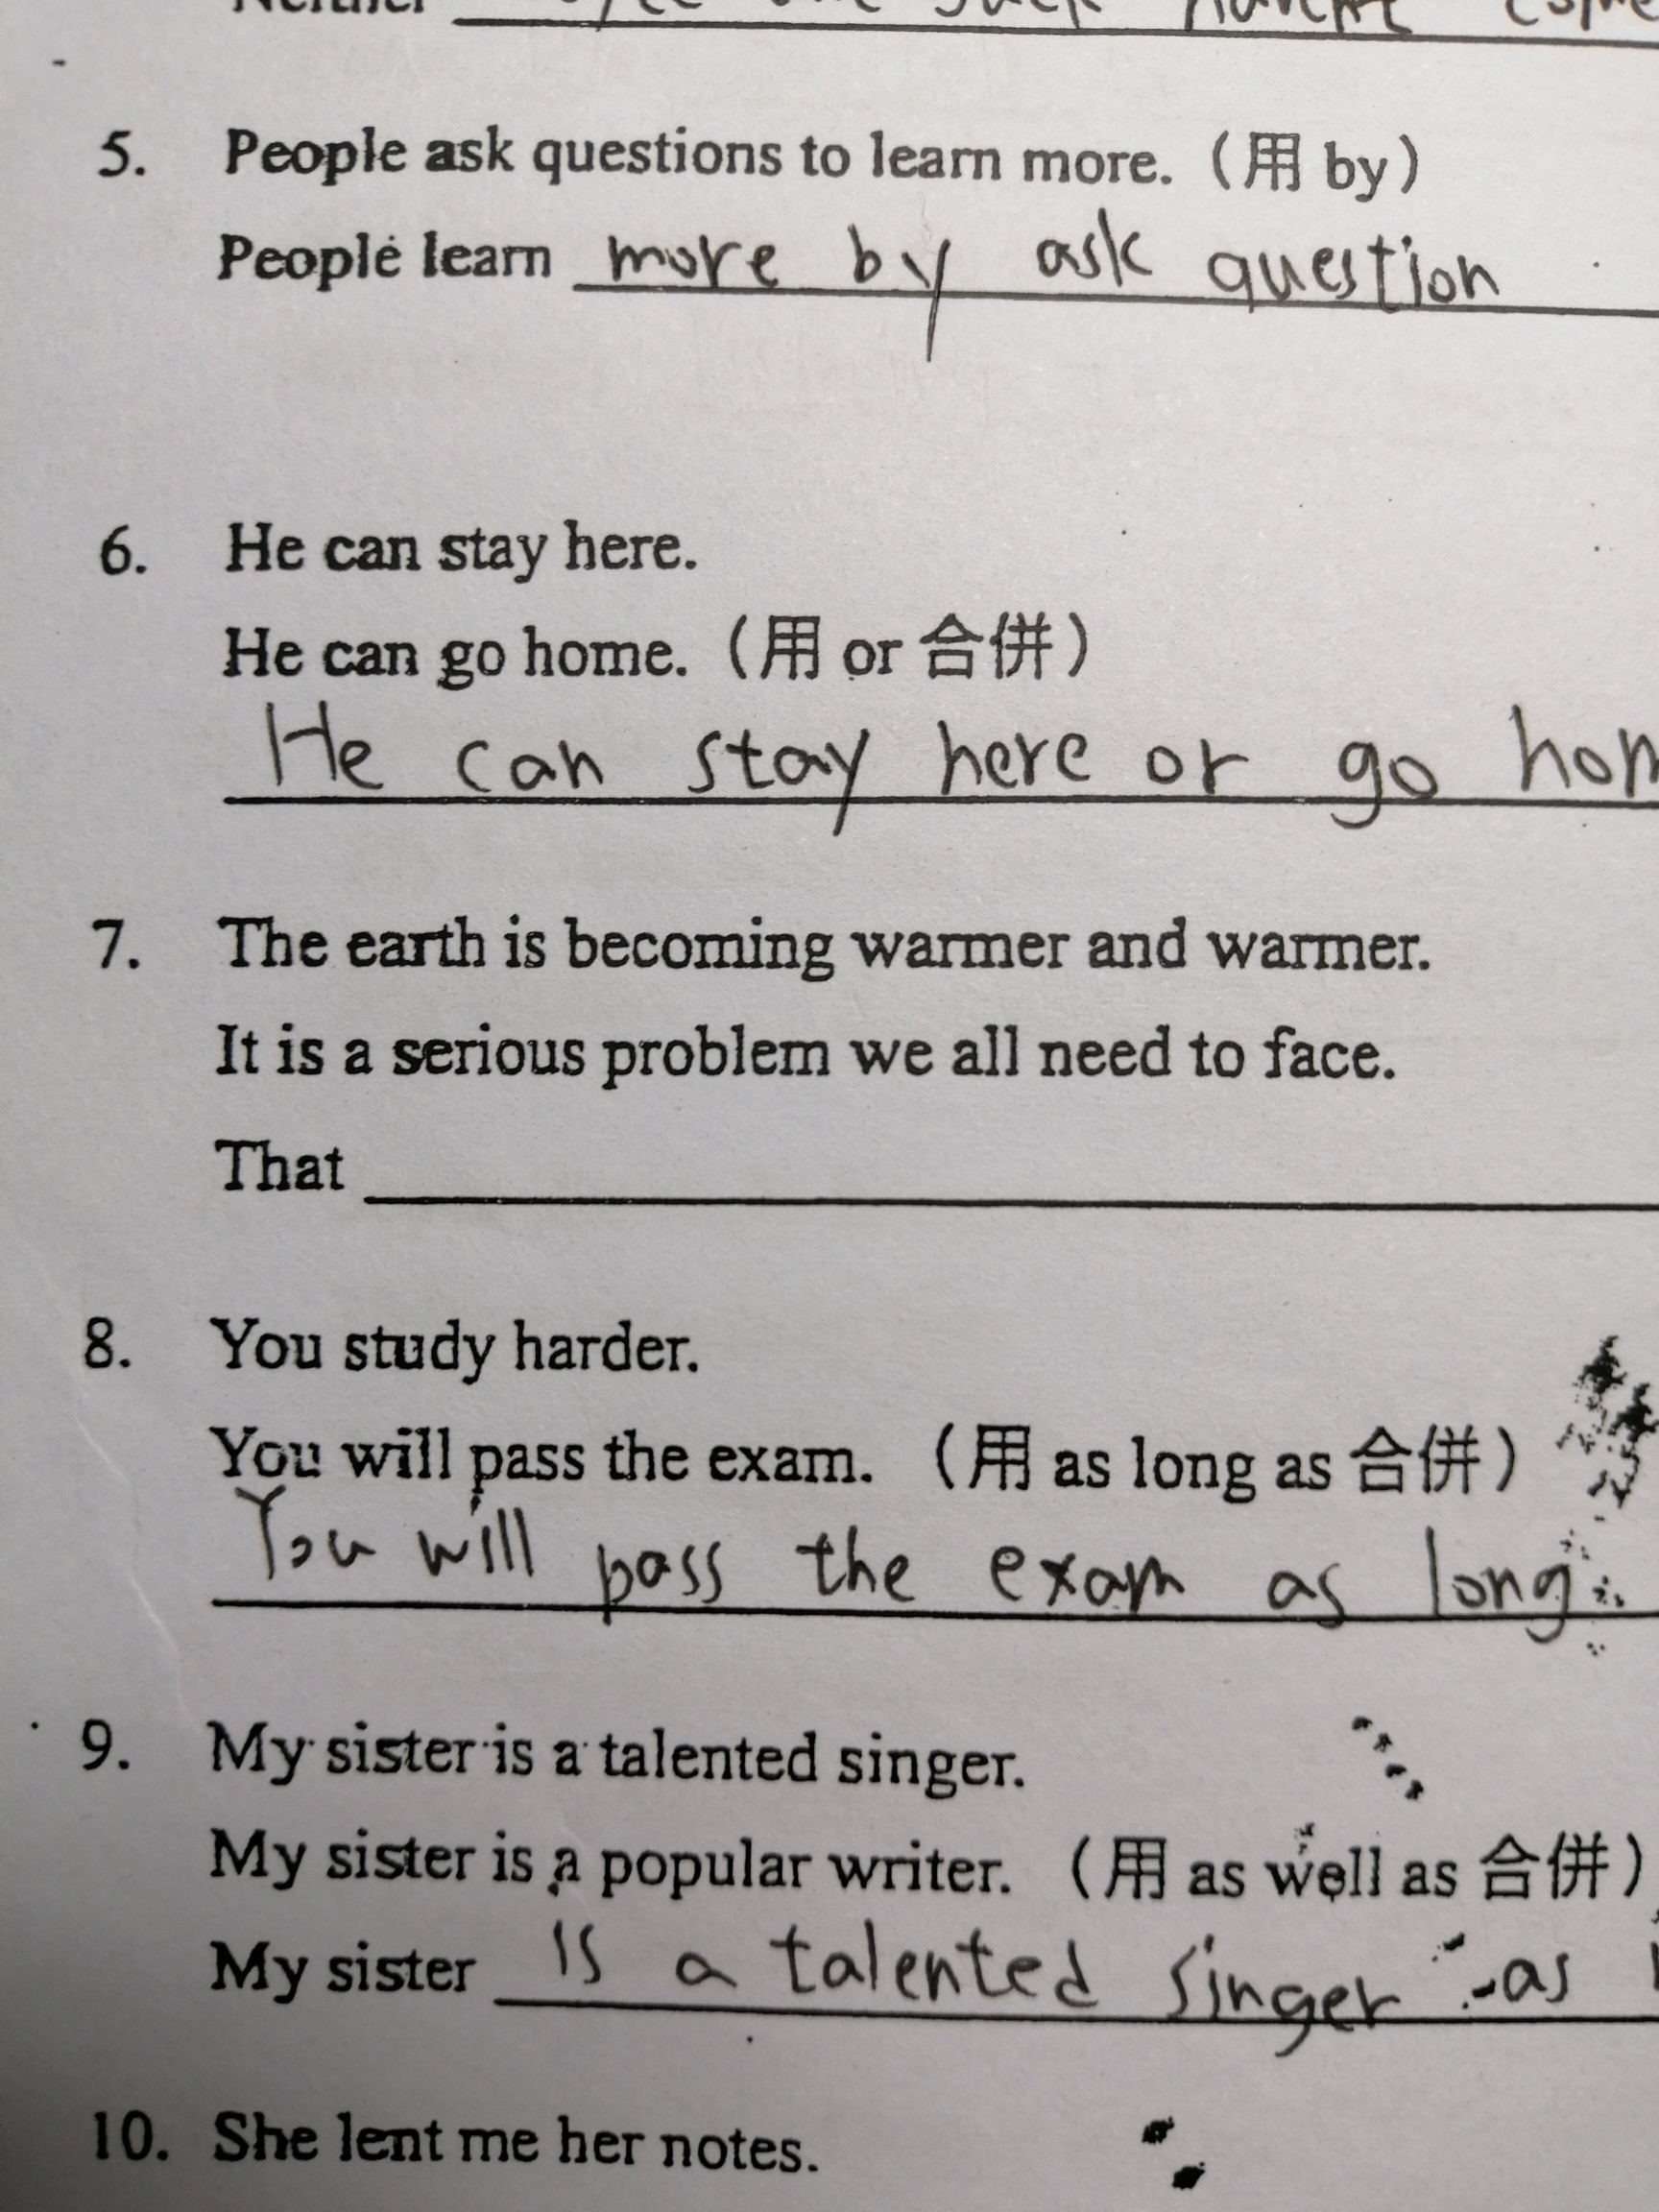 Neither
5. People ask questions to learn more. (用 by)
People learn more by ask question.
6. He can stay here.
He can go home. (用 or 合併)
He can stay here or go hom
7. The earth is becoming warmer and warmer.
It is a serious problem we all need to face.
That
8. You study harder.
You will pass the exam. (用 as long as 合併)
You will pass the exam as long
9. My sister is a talented singer.
My sister is a popular writer. (用 as well as 合併)
My sister is a talented singer as
10. She lent me her notes.